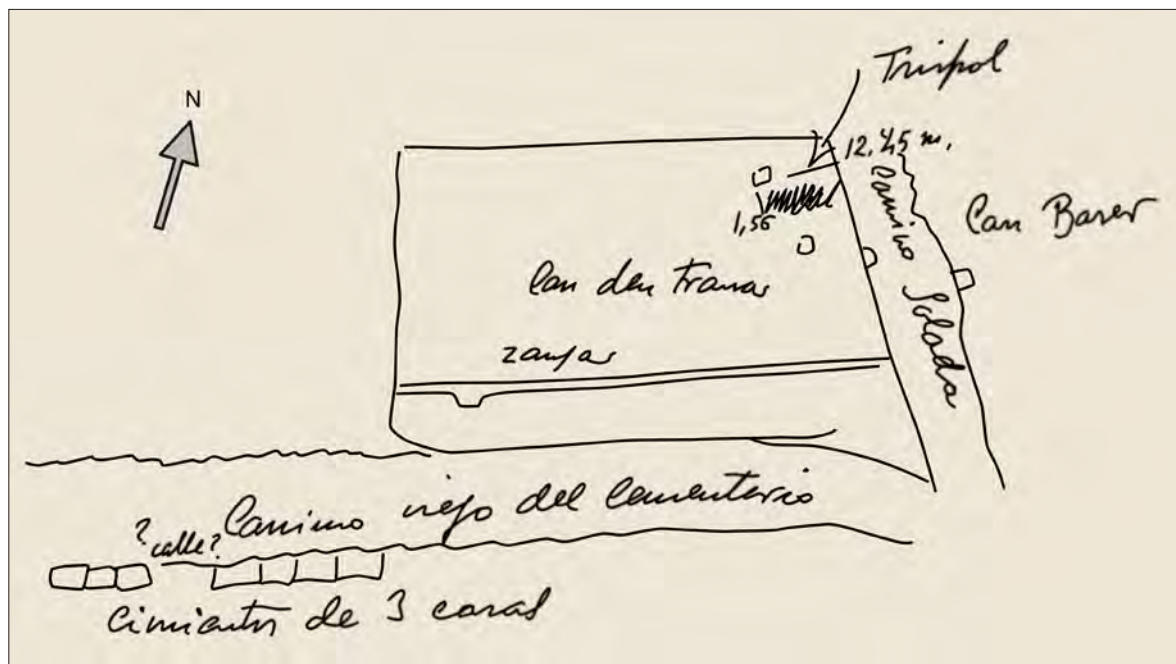 N
Tripol
12,45 m.
1,56
Can Baser
Camino Solada
Can den França
zanjas
Camino viejo del Cementerio
?calle?
Cimientos de 3 casas